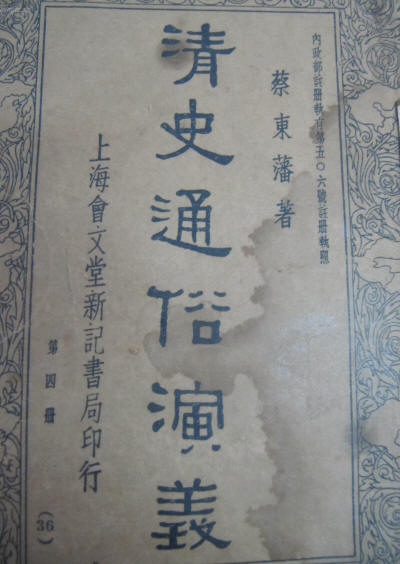 內政部註册執照第五〇六號註册執照
蔡東藩著
清史通俗演義
上海會文堂新記書局印行
第四册
(36)